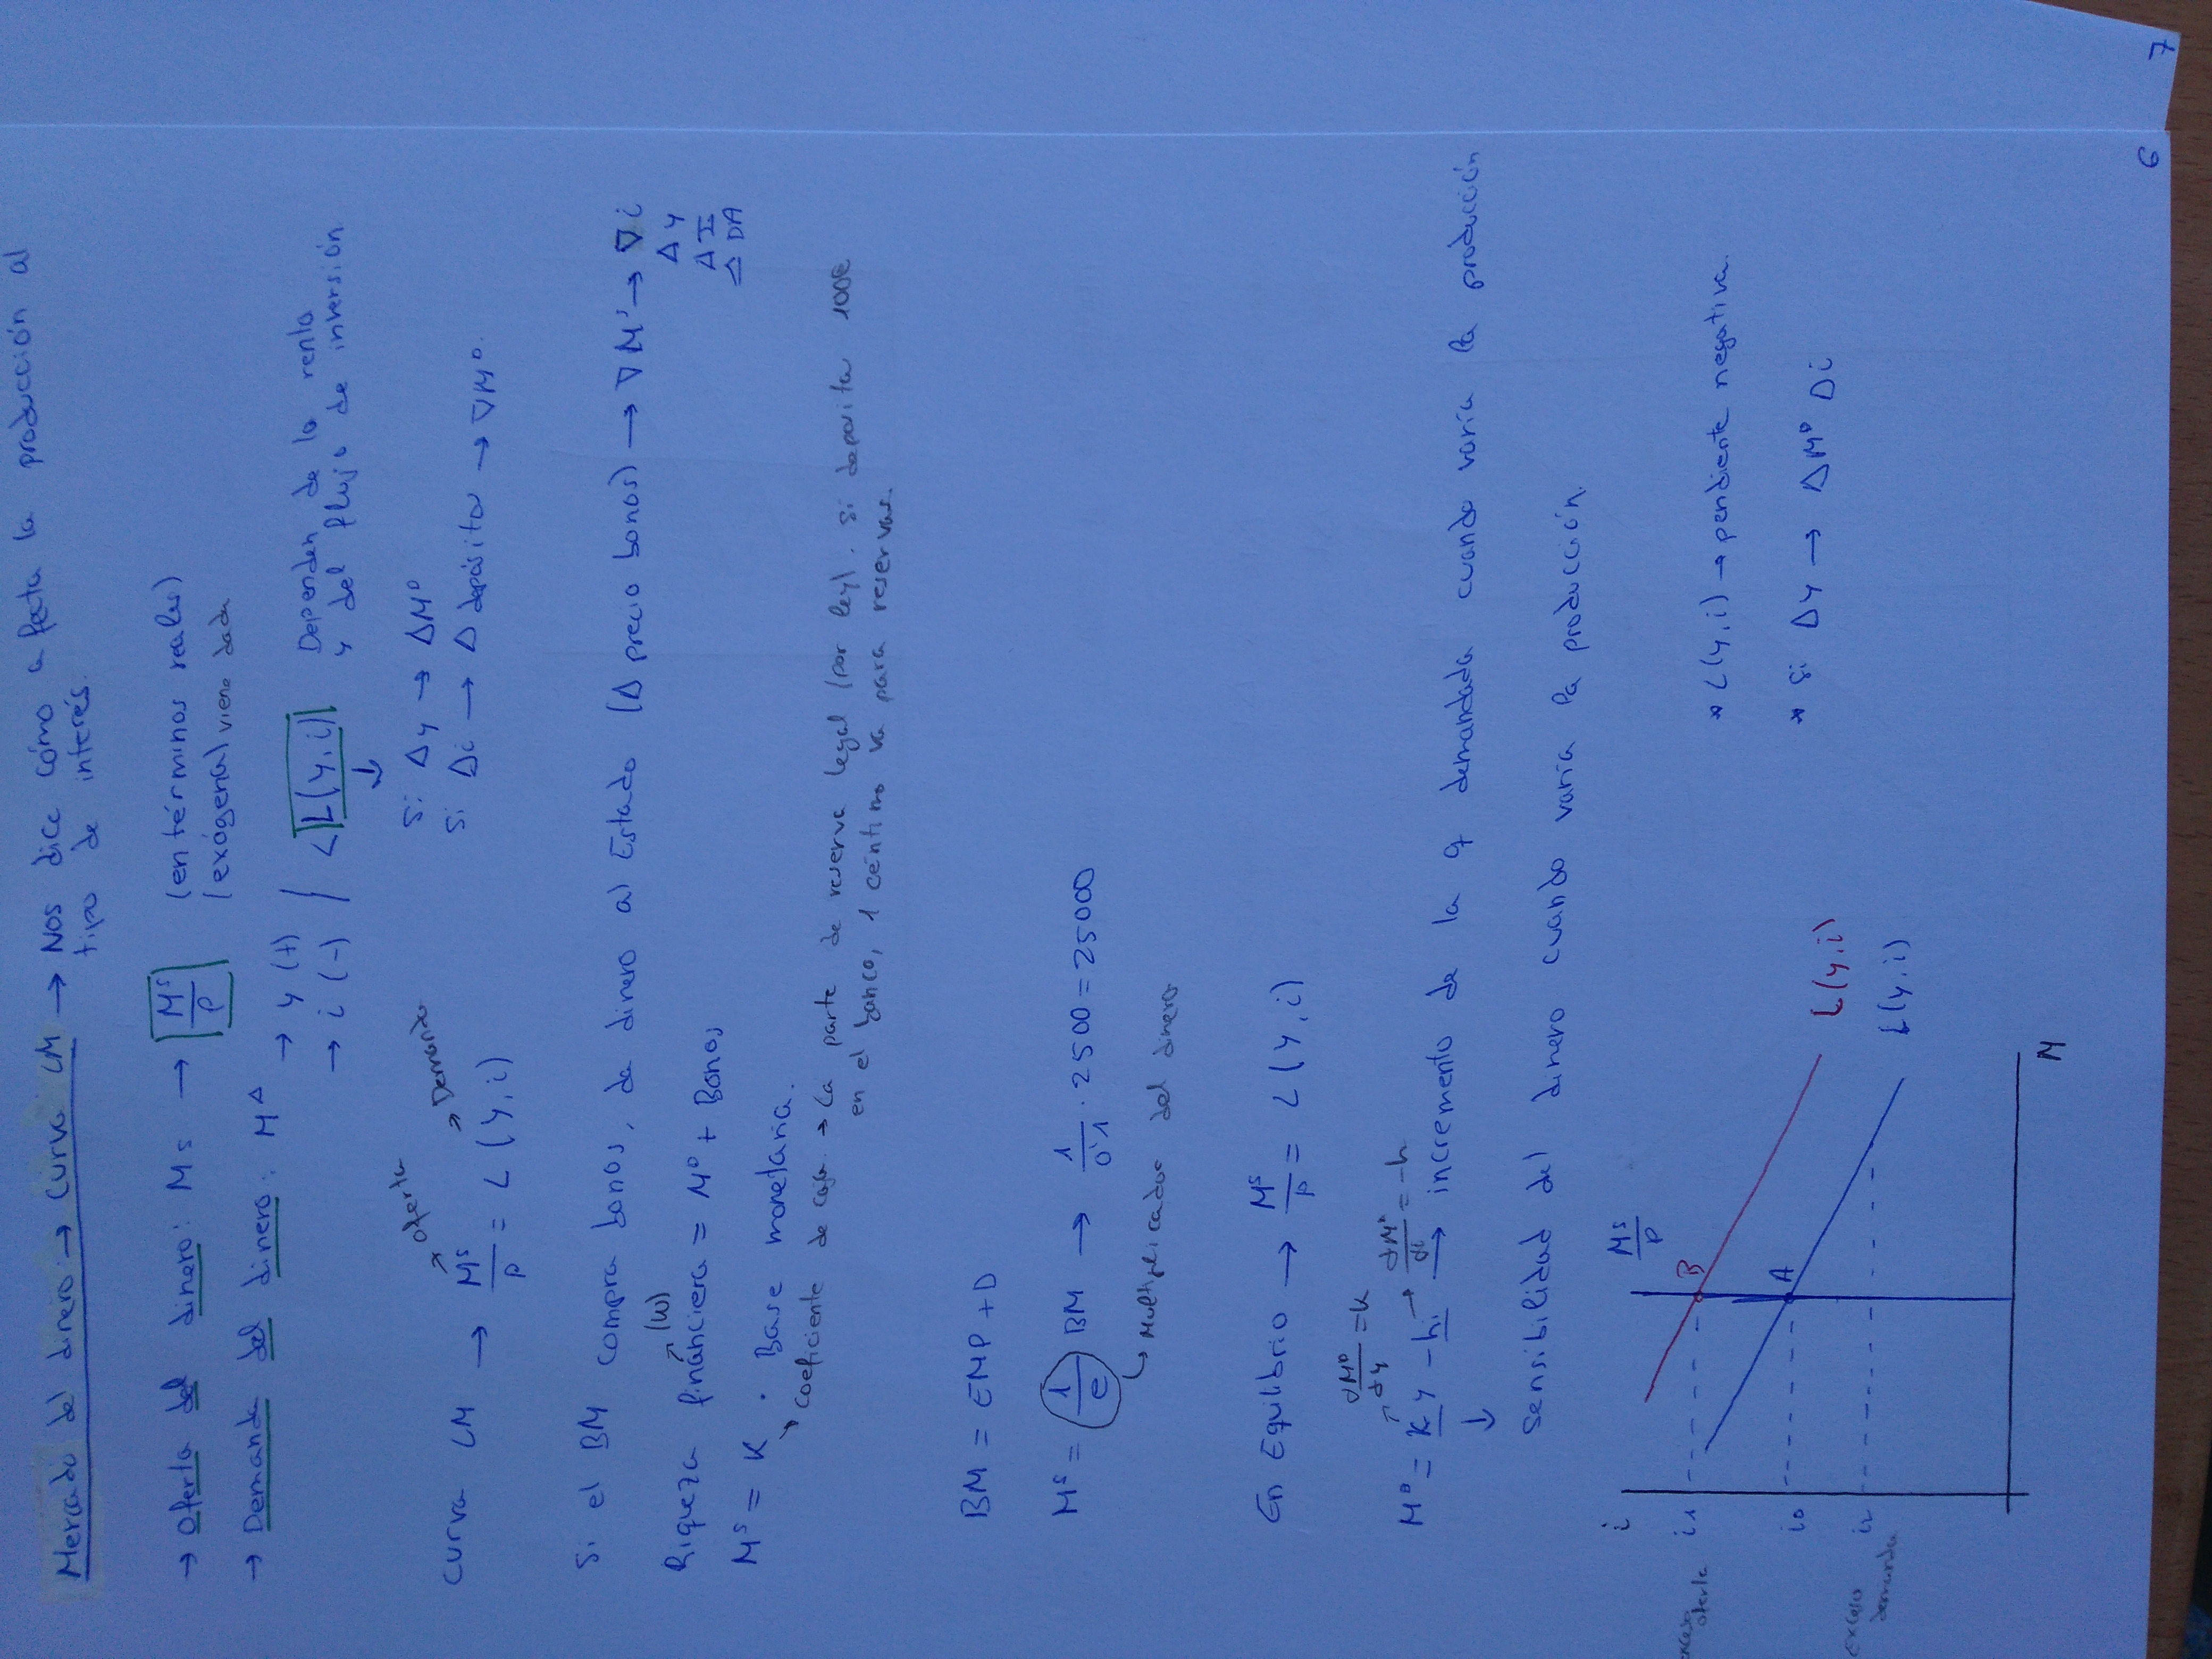 Mercado del dinero → Curva LM → Nos dice cómo afecta la producción al
tipo de interés.
→ Oferta del dinero: Ms → Mˢ/P (en términos reales)
(exógena) viene dada
→ Demanda del dinero: Mᴰ → y (+)
→ i (-) / L(y,i) Dependen de la renta
y del flujo de inversión
Si Δy → ΔMᴰ
Si Δi → Δ depósito → ∇Mᴰ.
Oferta Demanda
Curva LM → Mˢ/P = L(y,i)
Si el BM compra bonos, da dinero al Estado (Δ precio bonos) → ∇Mˢ → ∇i
Δy
ΔI
ΔDA
Riqueza financiera (W) = Mᴰ + Bonos
Mˢ = K · Base monetaria.
coeficiente de caja. → La parte de reserva legal (por ley). Si deposita 100€
en el banco, 1 céntimo va para reservas.
BM = EMP + D
Mˢ = 1/e BM → 1/0'1 · 2500 = 25000
Multiplicador del dinero
En Equilibrio → Mˢ/P = L(y,i)
dMᴰ/dy = K
dMᴰ/di = -h
Mᴰ = Ky - hi → incremento de la q demandada cuando varía la producción
Sensibilidad del dinero cuando varía la producción.
i
Mˢ/P
exceso oferta i1 B
i0 A
exceso demanda i2
L(y,i)
L(y,i)
M
* L(y,i) → pendiente negativa.
* Si Δy → ΔMᴰ Δi
6
7